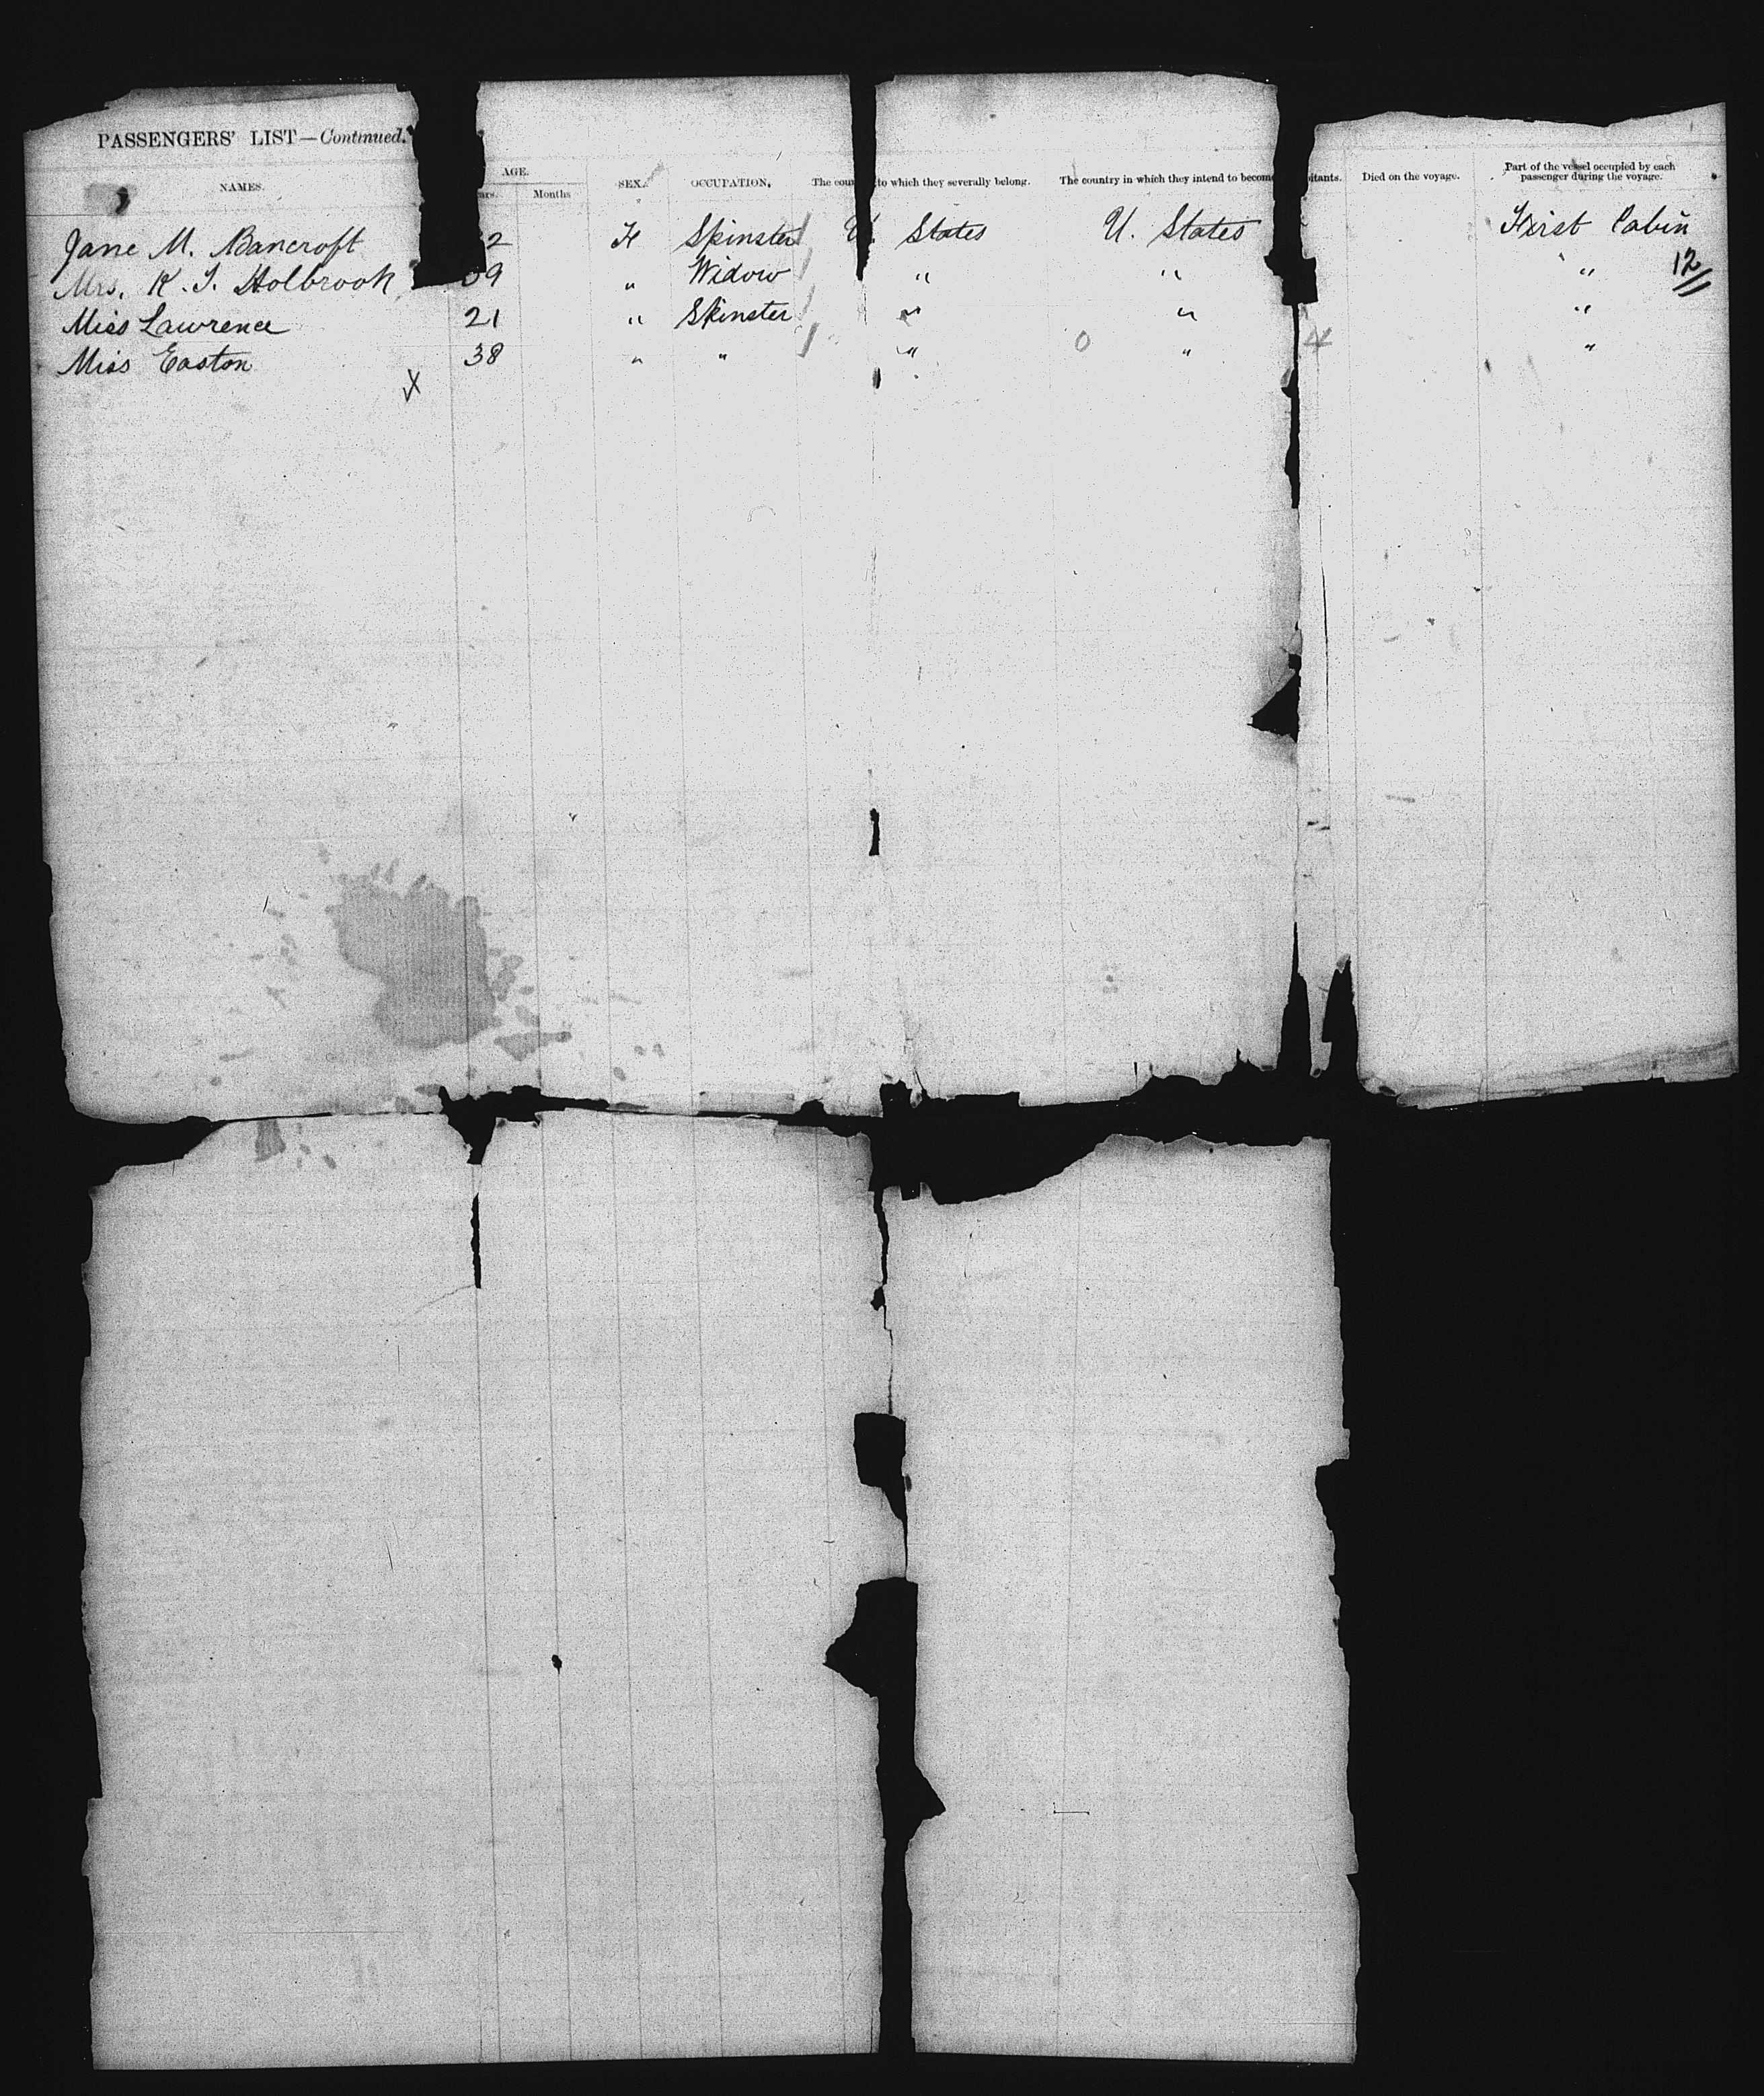 PASSENGERS' LIST—Continued.
NAMES. AGE. SEX. OCCUPATION, The to which they severally belong. The country in which they intend to become Died on the voyage. Part of the vessel occupied by each passenger during the voyage.
Months
Jane M. Bancroft 2 F Spinster U. States U. States First Cabin
12
Mrs. K. J. Holbrook 39 " Widow " " "
Miss Lawrence 21 " Spinster " " "
Miss Easton 38 " " " 0 " 4 "
X